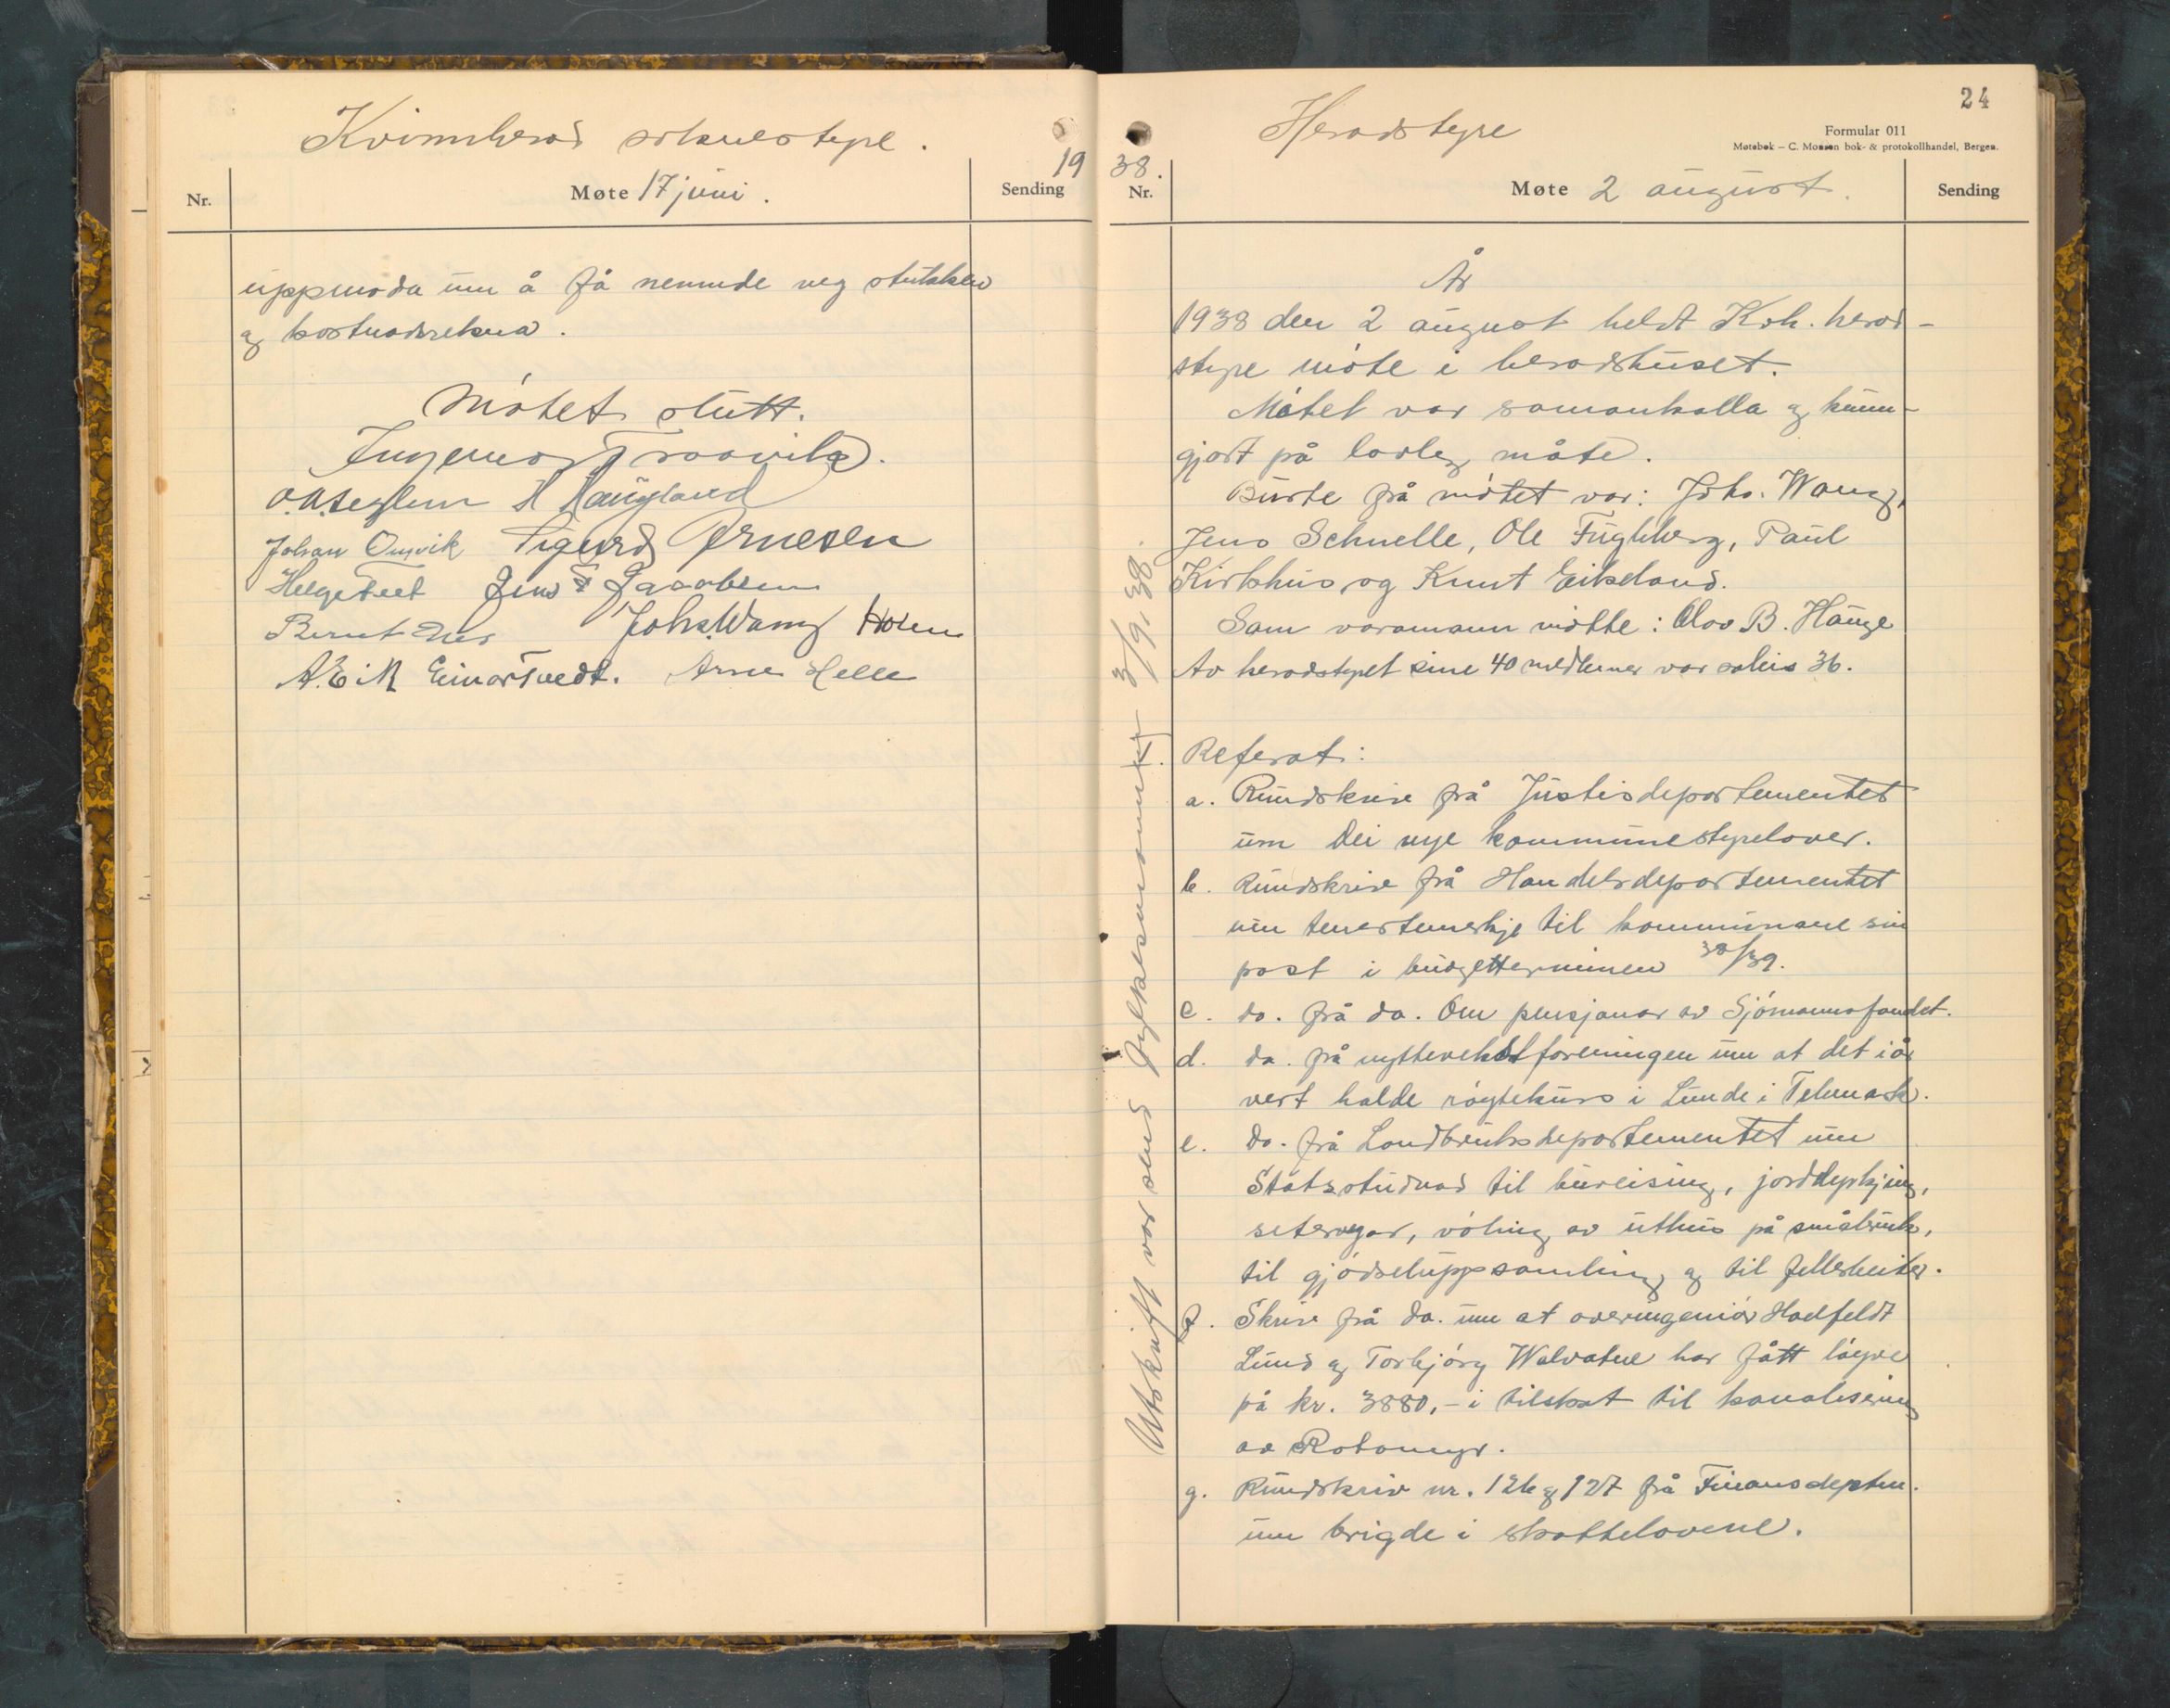 Kvinnherad soknestyre.
19
Nr.
Møte 17 juni.
Sending
uppmoda um å få nemnde veg stukken
og kostnadsrekna.
Møtet slutt.
Ingemar Traavik.
H Haugland
Johan Omvik Sigurd Arnesen
Helge Jens Jacobsen
Bernt Johs. Wang Holm
Einar Tvedt. Arne Helle
24
Heradstyre
Formular 011
Møtebok – C. Monsen bok- & protokollhandel, Bergen.
38.
Nr.
Møte 2 august.
Sending
År
1938 den 2 august heldt Kvh. herad-
styre møte i heradshuset.
Møtet var samankalla og kunn-
gjort på lovleg måte.
Burte frå møtet var: Johs. Wang,
Jens Schnelle, Ole Fugleberg, Paul
Kirkhus og Knut Eikeland.
Som varamann møtte: Olav B. Hauge
Av heradstyret sine 40 medlemer var soleis 36.
Referat:
a. Rundskriv frå Justisdepartementet
um dei nye kommunestyrelover.
b. Rundskriv frå Handelsdepartementet
um tenestemerkje til kommunane sin
post i budgetterminen 38/39.
c. do. frå do. Om pensjonar av Sjømannsfondet.
d. do. frå nyttevekstforeningen um at det i år
vert halde røgtekurs i Lunde i Telemark.
e. Do. frå Landbruksdepartementet um
Statsstudnad til bureising, jorddyrkjing,
setervegar, vøling av uthus på småbruk,
til gjødseluppsamling og til fellesbeiter.
f. Skriv frå do. um at overingeniør Hadfeldt
Lund og Torbjørg Valvatne har fått løyve
på kr. 3880,- i tilskot til kanalisering
av Rotamyr.
g. Rundskriv nr. 126 og 127 frå Finansdepten.
um brigde i skattelovene.
Utskrift var send fylkesmannen 3/9. 38.